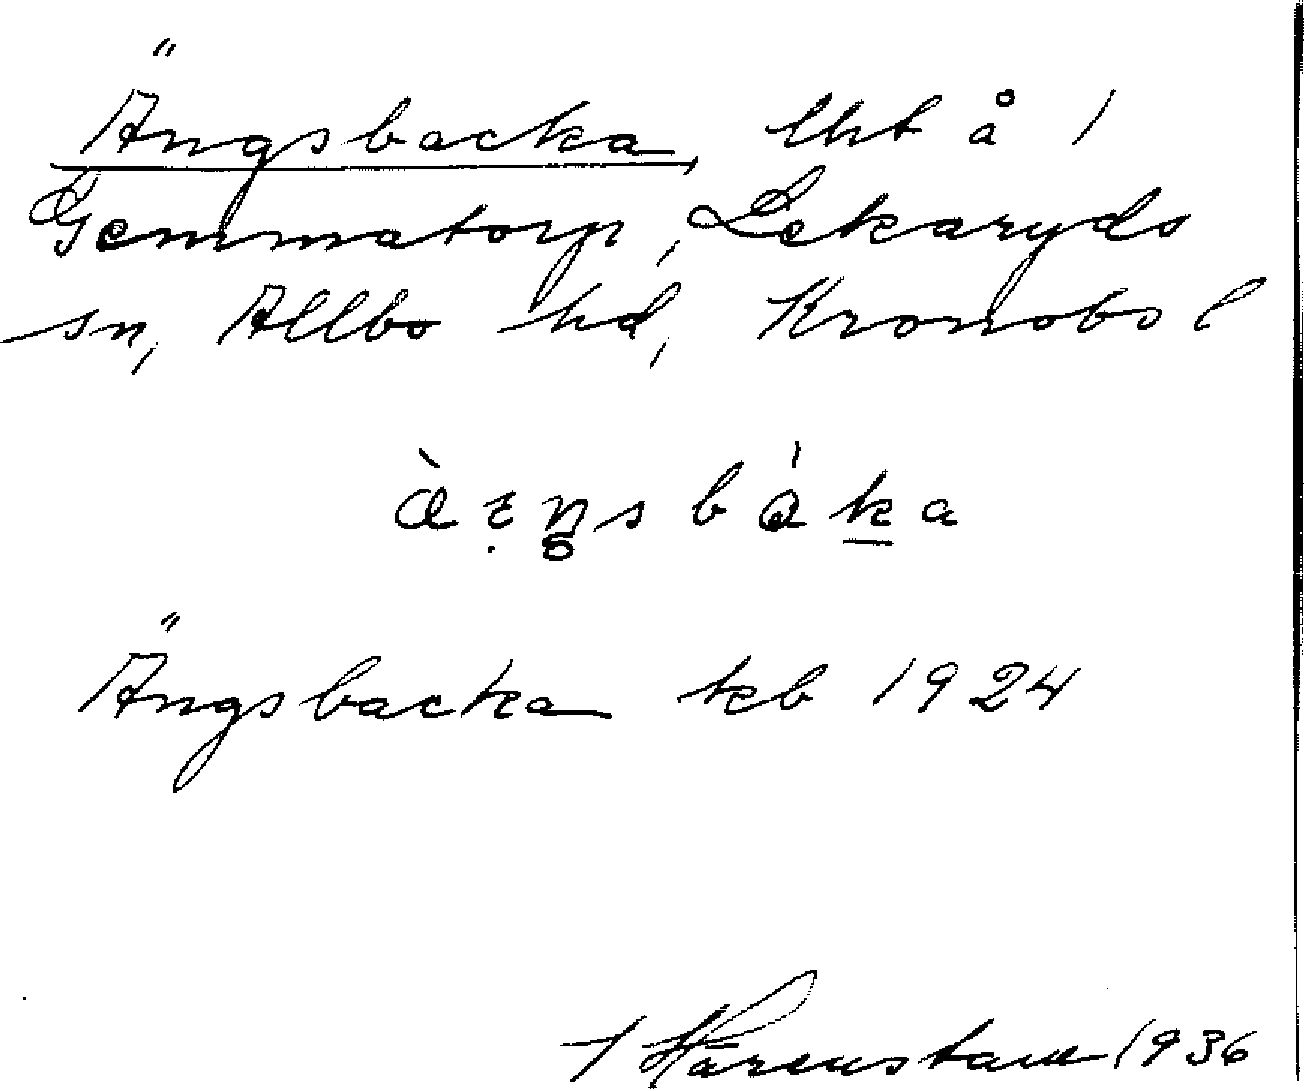 Ängsbacka, lht å 1
Gemmatorp, Lekaryds
sn, Allbo hd, Kronobs l
Ängsbacka kb 1924
1936